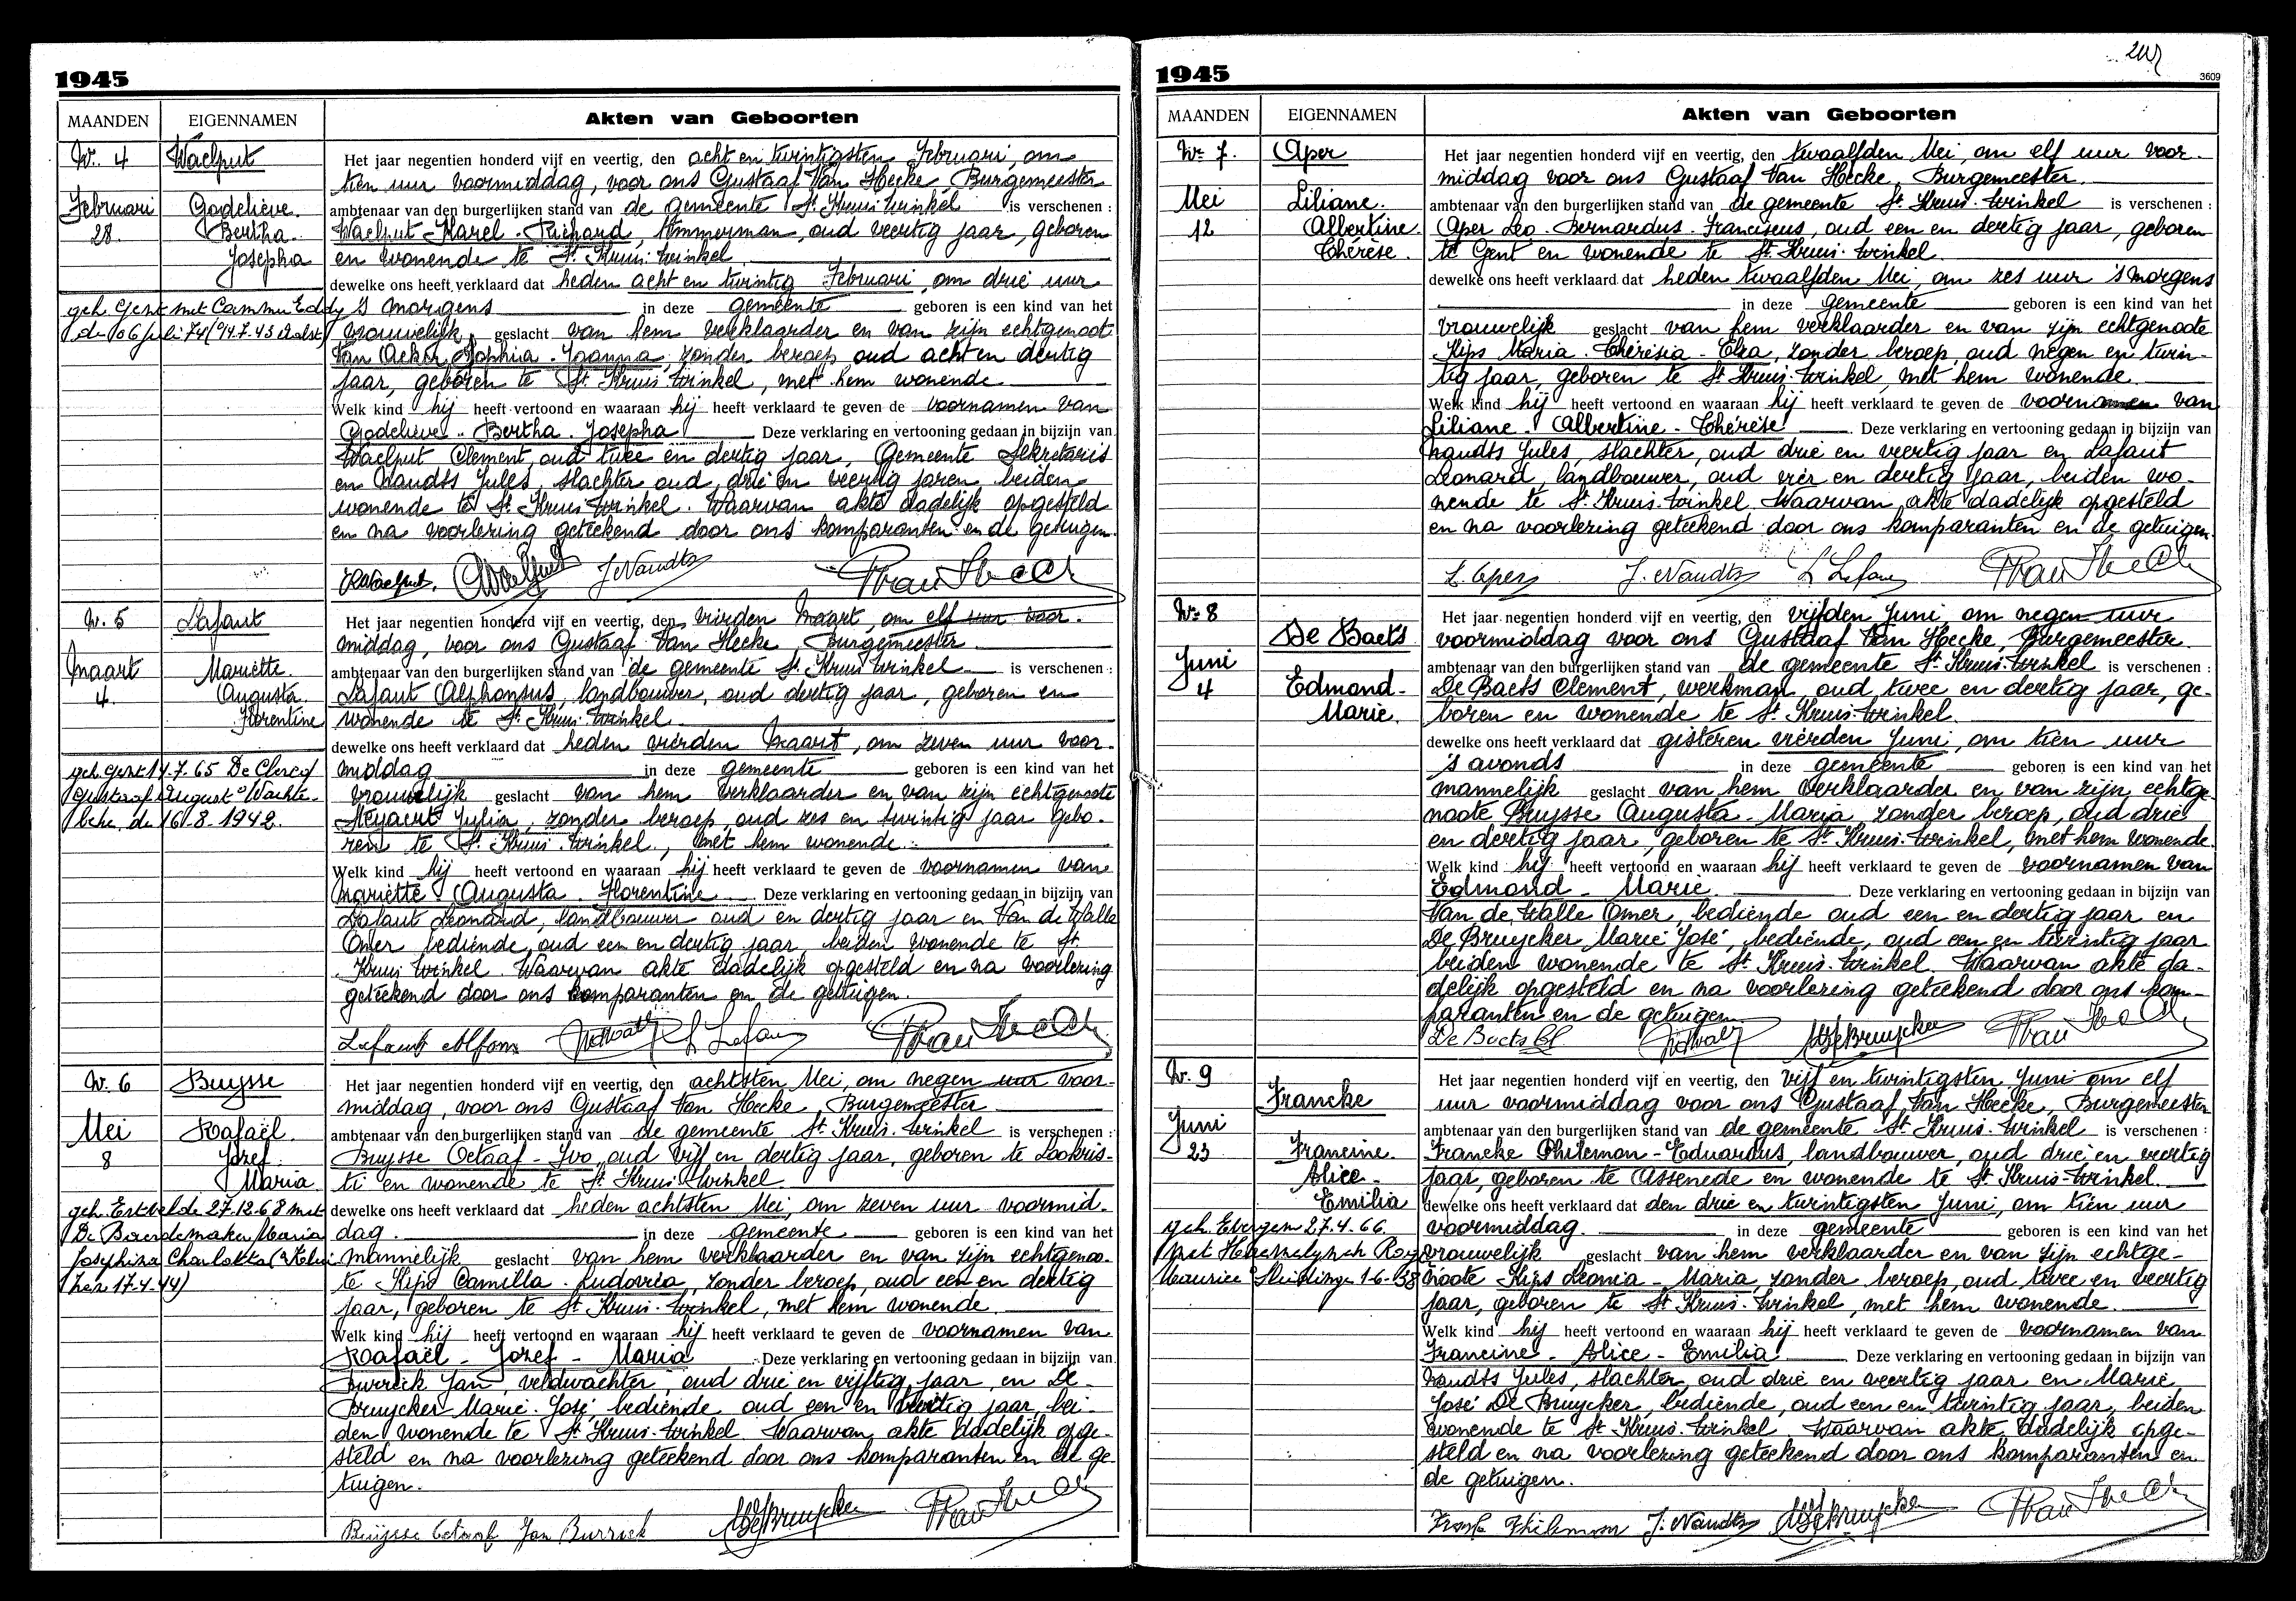 1945
MAANDEN EIGENNAMEN Akten van Geboorten
Nr. 4 Waelput
Februari 28. Godelieve. Bertha. Josepha
Het jaar negentien honderd vijf en veertig, den acht en twintigsten Februari, om
tien uur voormiddag, voor ons Gustaaf Van Hecke, Burgemeester
ambtenaar van den burgerlijken stand van de gemeente St Kruis-Winkel is verschenen :
Waelput Karel-Richard, timmerman, oud veertig jaar, geboren
en wonende te St. Kruis-Winkel
dewelke ons heeft verklaard dat heden acht en twintig Februari, om drie uur
's morgens in deze gemeente geboren is een kind van het
vrouwelijk geslacht van hem verklaarder en van zijn echtgenoot
Van Acker Sophia-Joanna, zonder beroep, oud acht en dertig
jaar, geboren te St Kruis-Winkel, met hem wonende
Welk kind hij heeft vertoond en waaraan hij heeft verklaard te geven de voornamen van
Godelieve-Bertha-Josepha Deze verklaring en vertooning gedaan in bijzijn van
Waelput Clement, oud twee en dertig jaar, Gemeente Sekretaris
en Naudts Jules, slachter oud drie en veertig jaren, beiden
wonende te St Kruis-Winkel. Waarvan akte dadelijk opgesteld
en na voorlezing geteekend door ons komparanten en de getuigen.
geh. Gent met Cammu Eddy
de 06 juli 74 (°14.7.43 Aalst)
KWaelput. CWaelput J Naudts GVan Hecke
Nr. 5 Lafaut
Maart 4. Mariette. Augusta. Florentine
Het jaar negentien honderd vijf en veertig, den vierden Maart, om elf uur voor-
middag, voor ons Gustaaf Van Hecke, Burgemeester
ambtenaar van den burgerlijken stand van de gemeente St Kruis-Winkel is verschenen :
Lafaut Alphonsus, landbouwer, oud dertig jaar, geboren en
wonende te St Kruis-Winkel
dewelke ons heeft verklaard dat heden vierden Maart, om zeven uur voor-
middag in deze gemeente geboren is een kind van het
vrouwelijk geslacht van hem verklaarder en van zijn echtgenoote
Neyaert Julia, zonder beroep, oud zes en twintig jaar gebo-
ren te St. Kruis-Winkel, met hem wonende.
Welk kind hij heeft vertoond en waaraan hij heeft verklaard te geven de voornamen van
Mariette-Augusta-Florentine Deze verklaring en vertooning gedaan in bijzijn van
Lafaut Leonard, landbouwer oud en dertig jaar en Van de Walle
Omer bediende, oud een en dertig jaar, beiden wonende te St.
Kruis Winkel. Waarvan akte dadelijk opgesteld en na voorlezing
geteekend door ons komparanten en de getuigen.
geh. Gent 14.7.65 De Clercq
Gustaaf August °Wachte-
beke, de 16-8-1942.
Lafaut Alfons L Lafaut GVan Hecke
Nr. 6 Buysse
Mei 8 Rafaël. Jozef. Maria
Het jaar negentien honderd vijf en veertig, den achtsten Mei, om negen uur voor-
middag, voor ons Gustaaf Van Hecke, Burgemeester
ambtenaar van den burgerlijken stand van de gemeente St. Kruis-Winkel is verschenen :
Buysse Octaaf-Ivo, oud vijf en dertig jaar, geboren te Lookris-
ti en wonende te St. Kruis-Winkel
dewelke ons heeft verklaard dat heden achtsten Mei, om zeven uur voormid-
dag. in deze gemeente geboren is een kind van het
mannelijk geslacht van hem verklaarder en van zijn echtgenoo-
te Kips Camilla-Ludovica, zonder beroep, oud een en dertig
jaar, geboren te St Kruis-Winkel, met hem wonende.
Welk kind hij heeft vertoond en waaraan hij heeft verklaard te geven de voornamen van
Rafaël-Jozef-Maria Deze verklaring en vertooning gedaan in bijzijn van
Burrick Jan, veldwachter, oud drie en vijftig jaar, en De
Bruycker Marie-José, bediende oud een en twintig jaar, bei-
den wonende te St Kruis-Winkel. Waarvan akte dadelijk opge-
steld en na voorlezing geteekend door ons komparanten en de ge-
tuigen.
geh. Ertvelde 27.12.68 met
De Boerdemaker Maria
Josephina Charlotta
17.4.44)
Buijsse Octaaf Jan Burrick MJDeBruycker GVan Hecke
1945 3609
MAANDEN EIGENNAMEN Akten van Geboorten
Nr. 7. Aper
Mei 12 Liliane. Albertine. Thérèse.
Het jaar negentien honderd vijf en veertig, den twaalfden Mei, om elf uur voor-
middag voor ons Gustaaf Van Hecke, Burgemeester
ambtenaar van den burgerlijken stand van de gemeente St. Kruis-Winkel is verschenen :
Aper Leo-Bernardus-Franciscus, oud een en dertig jaar, geboren
te Gent en wonende te St. Kruis-Winkel
dewelke ons heeft verklaard dat heden twaalfden Mei, om zes uur 's morgens
in deze gemeente geboren is een kind van het
vrouwelijk geslacht van hem verklaarder en van zijn echtgenoote
Kips Maria-Thérèsia-Elza, zonder beroep, oud negen en twin-
tig jaar, geboren te St Kruis-Winkel, met hem wonende
Welk kind hij heeft vertoond en waaraan hij heeft verklaard te geven de voornamen van
Liliane-Albertine-Thérèse. Deze verklaring en vertooning gedaan in bijzijn van
Naudts Jules, slachter, oud drie en veertig jaar en Lafaut
Leonard, landbouwer, oud vier en dertig jaar, beiden wo-
nende te St. Kruis-Winkel. Waarvan akte dadelijk opgesteld
en na voorlezing geteekend door ons komparanten en de getuigen.
L. Aper J. Naudts L Lafaut GVan Hecke
Nr. 8 De Baets
Juni 4 Edmond- Marie.
Het jaar negentien honderd vijf en veertig, den vijfden Juni, om negen uur
voormiddag voor ons Gustaaf Van Hecke, Burgemeester
ambtenaar van den burgerlijken stand van de gemeente St. Kruis-Winkel is verschenen :
De Baets Clement, werkman, oud twee en dertig jaar, ge-
boren en wonende te St. Kruis-Winkel
dewelke ons heeft verklaard dat gisteren vierden Juni, om tien uur
's avonds in deze gemeente geboren is een kind van het
mannelijk geslacht van hem verklaarder en van zijn echtge-
noote Buysse Augusta-Maria, zonder beroep, oud drie
en dertig jaar, geboren te St Kruis-Winkel, met hem wonende.
Welk kind hij heeft vertoond en waaraan hij heeft verklaard te geven de voornamen van
Edmond-Marie. Deze verklaring en vertooning gedaan in bijzijn van
Van de Walle Omer, bediende oud een en dertig jaar en
De Bruycker Marie José, bediende, oud een en twintig jaar
beiden wonende te St. Kruis-Winkel. Waarvan akte da-
delijk opgesteld en na voorlezing geteekend door ons kom-
paranten en de getuigen
De Baets Cl MJDeBruycker GVan Hecke
Nr. 9 Francke
Juni 23 Francine. Alice- Emilia
Het jaar negentien honderd vijf en veertig, den vijf en twintigsten Juni om elf
uur voormiddag voor ons Gustaaf Van Hecke, Burgemeester
ambtenaar van den burgerlijken stand van de gemeente St. Kruis-Winkel is verschenen :
Francke Philemon-Eduardus, landbouwer, oud drie en veertig
jaar, geboren te Assenede en wonende te St. Kruis-Winkel.
dewelke ons heeft verklaard dat den drie en twintigsten Juni, om tien uur
voormiddag. in deze gemeente geboren is een kind van het
vrouwelijk geslacht van hem verklaarder en van zijn echtge-
noote Kips Leonia-Maria, zonder beroep, oud twee en veertig
jaar, geboren te St Kruis-Winkel, met hem wonende.
Welk kind hij heeft vertoond en waaraan hij heeft verklaard te geven de voornamen van
Francine-Alice-Emilia. Deze verklaring en vertooning gedaan in bijzijn van
Naudts Jules, slachter, oud drie en veertig jaar en Marie
José De Bruycker, bediende, oud een en twintig jaar, beiden
wonende te St. Kruis-Winkel. Waarvan akte dadelijk opge-
steld en na voorlezing geteekend door ons komparanten en
de getuigen.
geh. Evergem 27.4.66
met
Maurice °Sleidinge 1-6-38
Philemon J. Naudts MJDeBruycker GVan Hecke